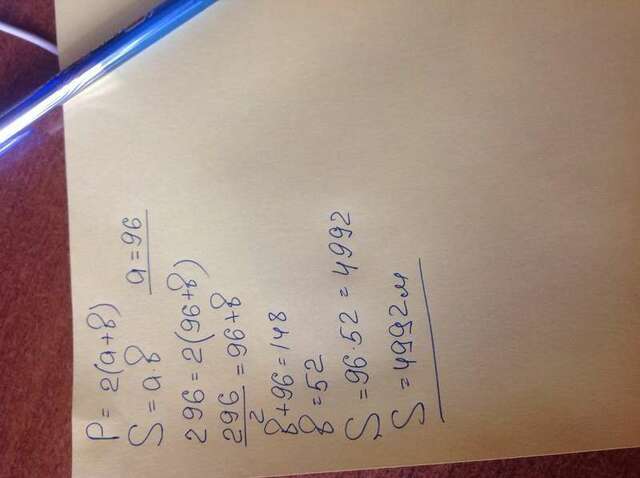 P = 2(a+b)
S = a·b
a = 96
296 = 2(96+b)
296/2 = 96+b
b+96 = 148
b = 52
S = 96·52 = 4992
S = 4992 м